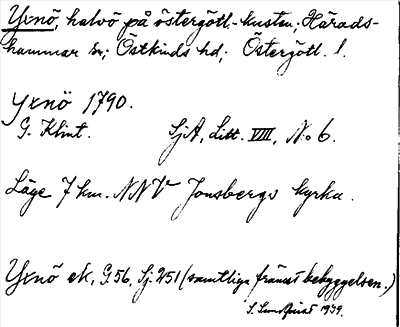 Yxnö, halvö på östergötl.-kusten; Härads-
hammar sn; Östkinds hd; Östergötl. l.
Yxnö 1790.
G. Klint. SjA, Litt. VIII, N:o 6.
Läge 7 km. NNV Jonsbergs kyrka.
Yxnö ek, G56, Sj. 251 (samtliga främst bebyggelsen.)
S. Sundquist 1939.